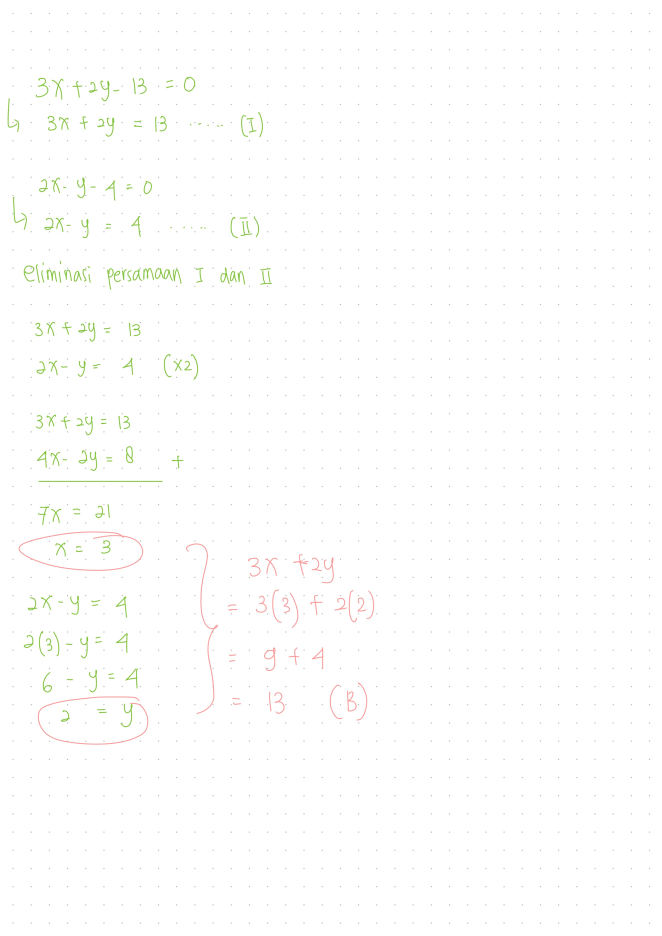 3x + 2y - 13 = 0
↳ 3x + 2y = 13 ...... (I)
2x - y - 4 = 0
↳ 2x - y = 4 ...... (II)
eliminasi persamaan I dan II
3x + 2y = 13
2x - y = 4 (x2)
3x + 2y = 13
4x - 2y = 8 +
7x = 21
x = 3
2x - y = 4
2(3) - y = 4
6 - y = 4
2 = y
3x + 2y
= 3(3) + 2(2)
= 9 + 4
= 13 (B)